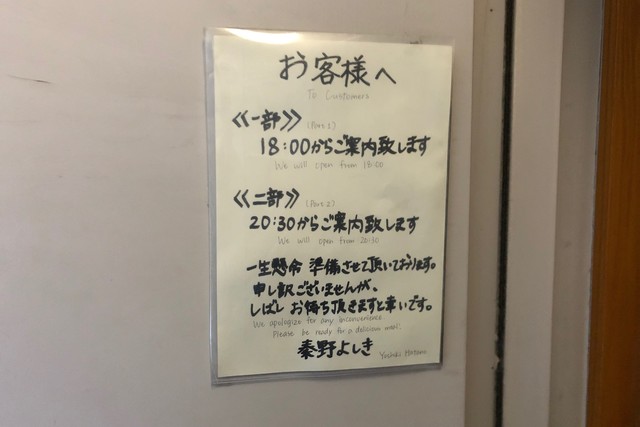 お客様へ
To Customers
《一部》 (Part 1)
18:00からご案内致します
We will open from 18:00
《二部》 (Part 2)
20:30からご案内致します
We will open from 20:30
一生懸命 準備させて頂いております。
申し訳ございませんが、
しばし お待ち頂きますと幸いです。
We apologize for any inconvenience.
Please be ready for a delicious meal.
秦野よしき Yoshiki Hatano